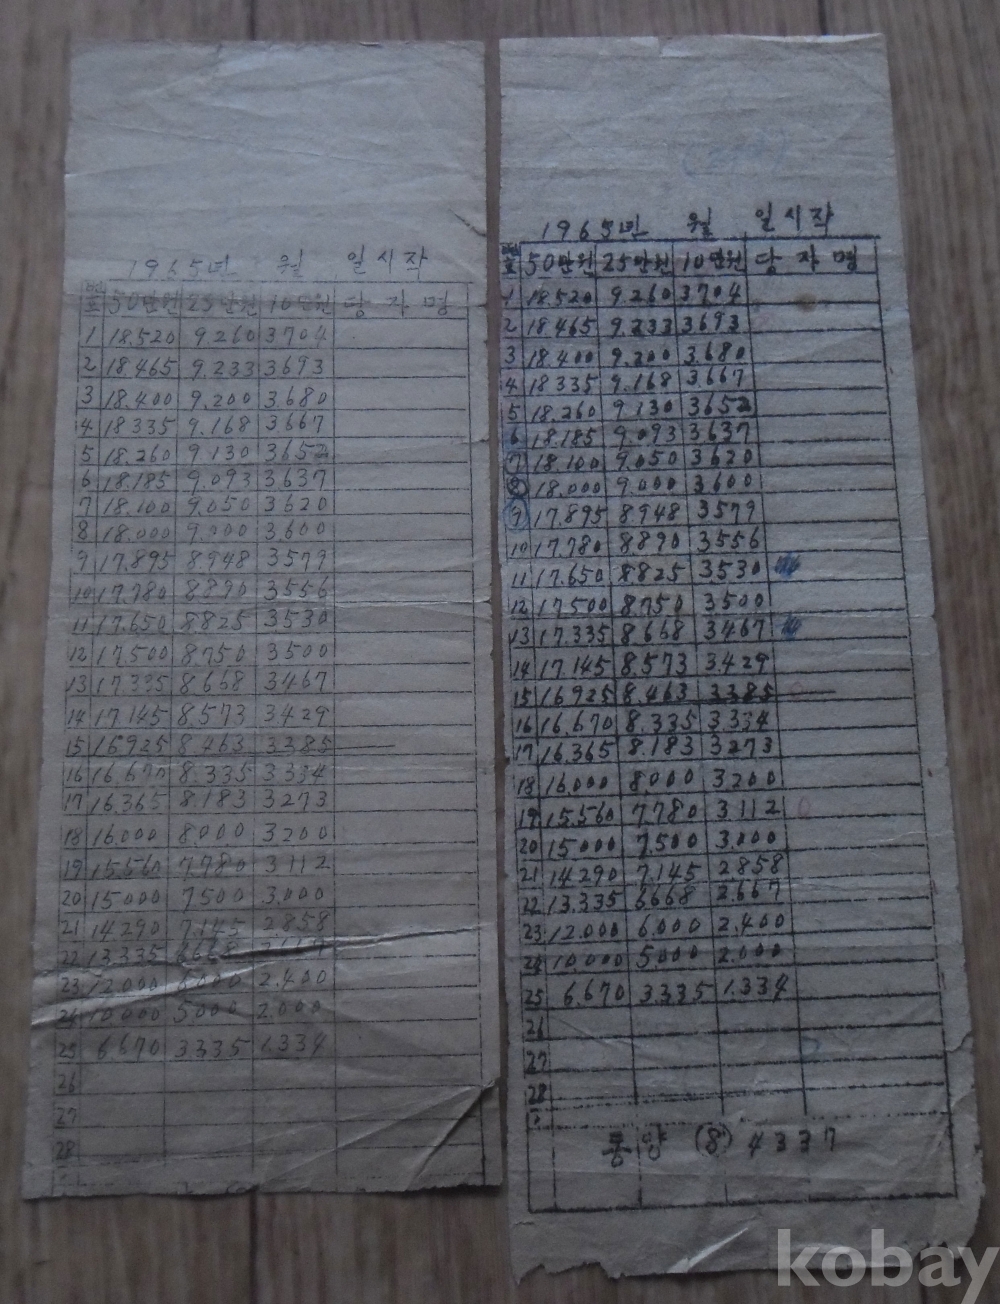 1965년 월 일시작
번호 50만원 25만원 10만원 당자명
1 18.520 9.260 3704
2 18465 9.233 3693
3 18.400 9.200 3.680
4 18335 9.168 3.667
5 18.260 9.130 3652
6 18.185 9.093 3.637
7 18.100 9.050 3620
8 18.000 9.000 3.600
9 17.895 8.948 3579
10 17.780 8.890 3556
11 17.650 8825 3530
12 17.500 8.750 3500
13 17.335 8.668 3467
14 17.145 8.573 3429
15 16925 8.463 3385
16 16.670 8.335 3334
17 16.365 8.183 3273
18 16.000 8.000 3200
19 15.560 7.780 3112
20 15000 7500 3.000
21 14290 7.145 2.858
22 13.335 6668
23 12.000 6.000 2.400
24 10.000 5000 2.000
25 6670 3335 1.334
26
27
28
1965년 월 일시작
번호 50만원 25만원 10만원 당자명
1 18.520 9.260 3704
2 18465 9.233 3693
3 18.400 9.200 3.680
4 18335 9.168 3.667
5 18.260 9.130 3652
6 18.185 9.093 3.637
7 18.100 9.050 3620
8 18.000 9.000 3.600
9 17.895 8.948 3579
10 17.780 8.890 3556
11 17.650 8825 3530
12 17.500 8.750 3500
13 17.335 8.668 3467
14 17.145 8.573 3.429
15 16925 8.463 3385
16 16.670 8.335 3334
17 16.365 8.183 3273
18 16.000 8.000 3200
19 15.560 7.780 3112
20 15000 7.500 3.000
21 14290 7.145 2858
22 13.335 6668 2.667
23 12.000 6.000 2.400
24 10.000 5.000 2.000
25 6.670 3.335 1.334
26
27
28
풍양 (8) 4337
kobay